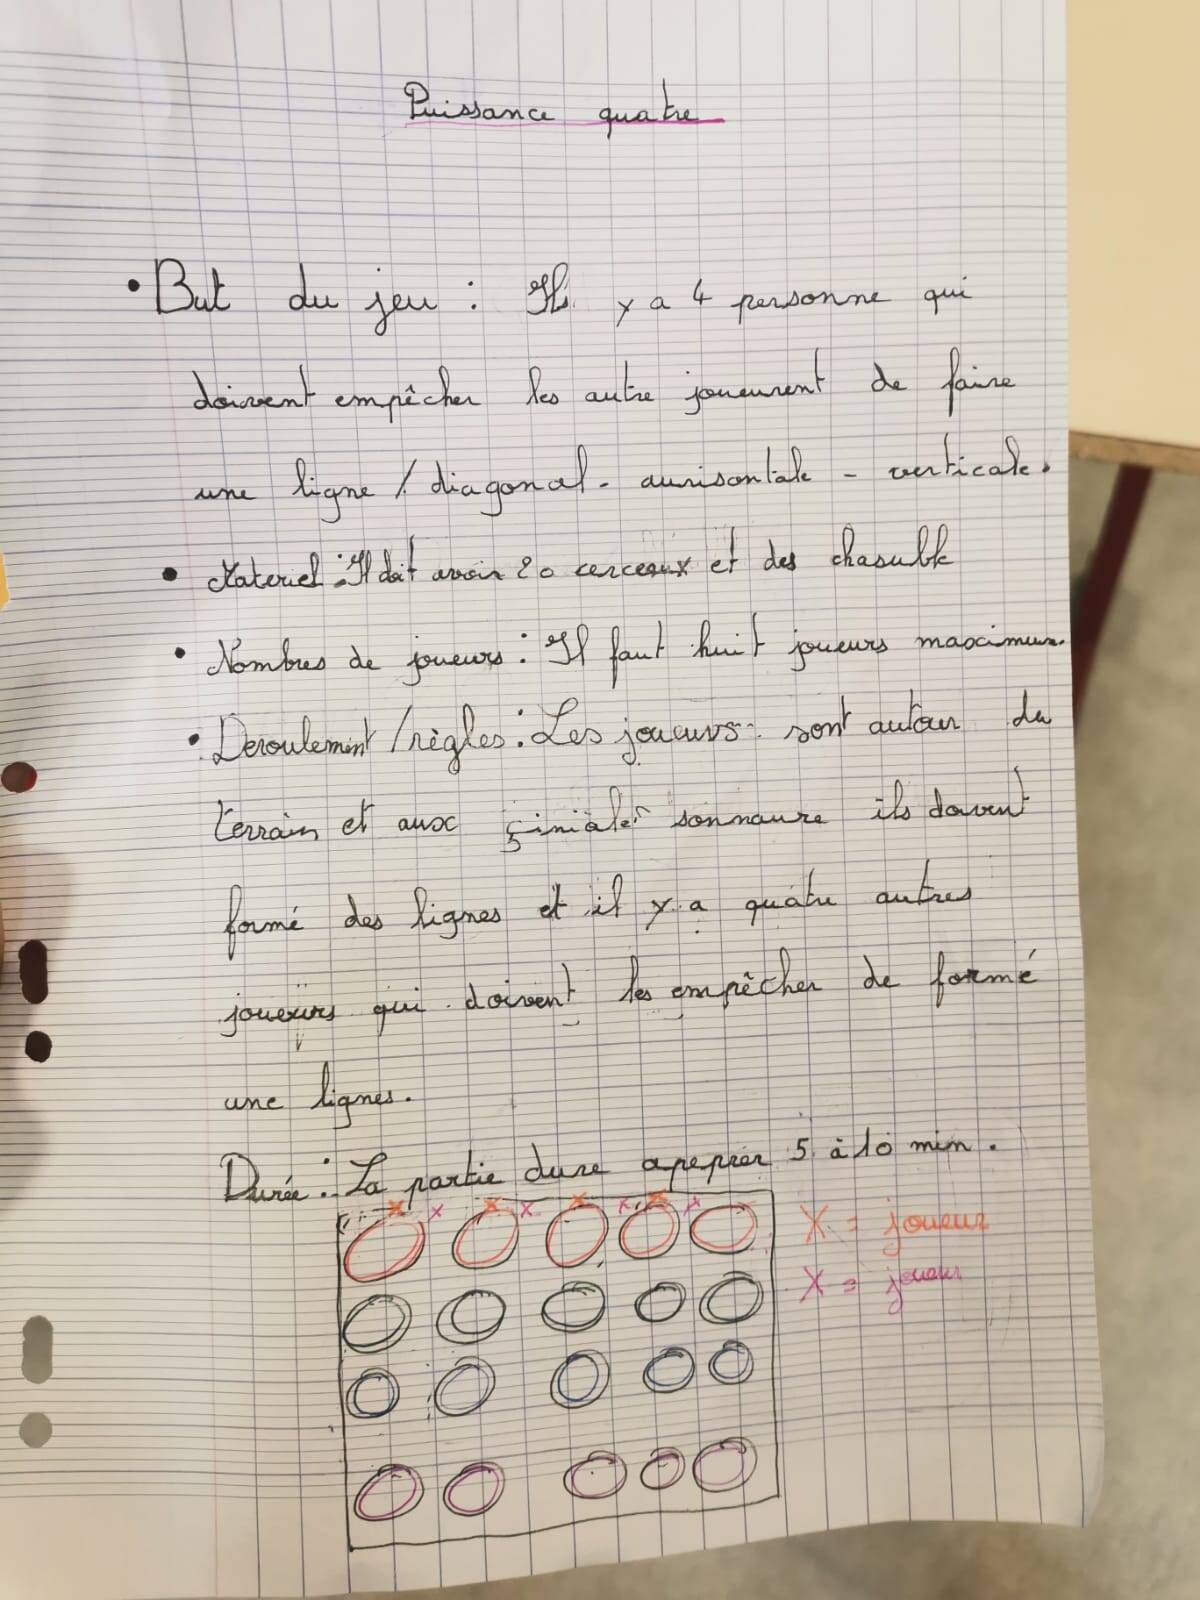 Puissance quatre
• But du jeu : Il y a 4 personne qui
doivent empêcher les autre joueurent de faire
une ligne / diagonal - aurisontale - verticale.
• Materiel : Il doit avoir 20 cerceaux et des chasuble
• Nombres de joueurs : Il faut huit joueurs maximum.
• Deroulement / règles : Les joueurs sont autour du
terrain et aux siniale sonnaure ils doivent
formé des lignes et il y a quatre autres
joueurs qui doivent les empêcher de formé
une lignes.
Durée : La partie dure apeprer 5 à 10 min.
X = joueur
X = joueur